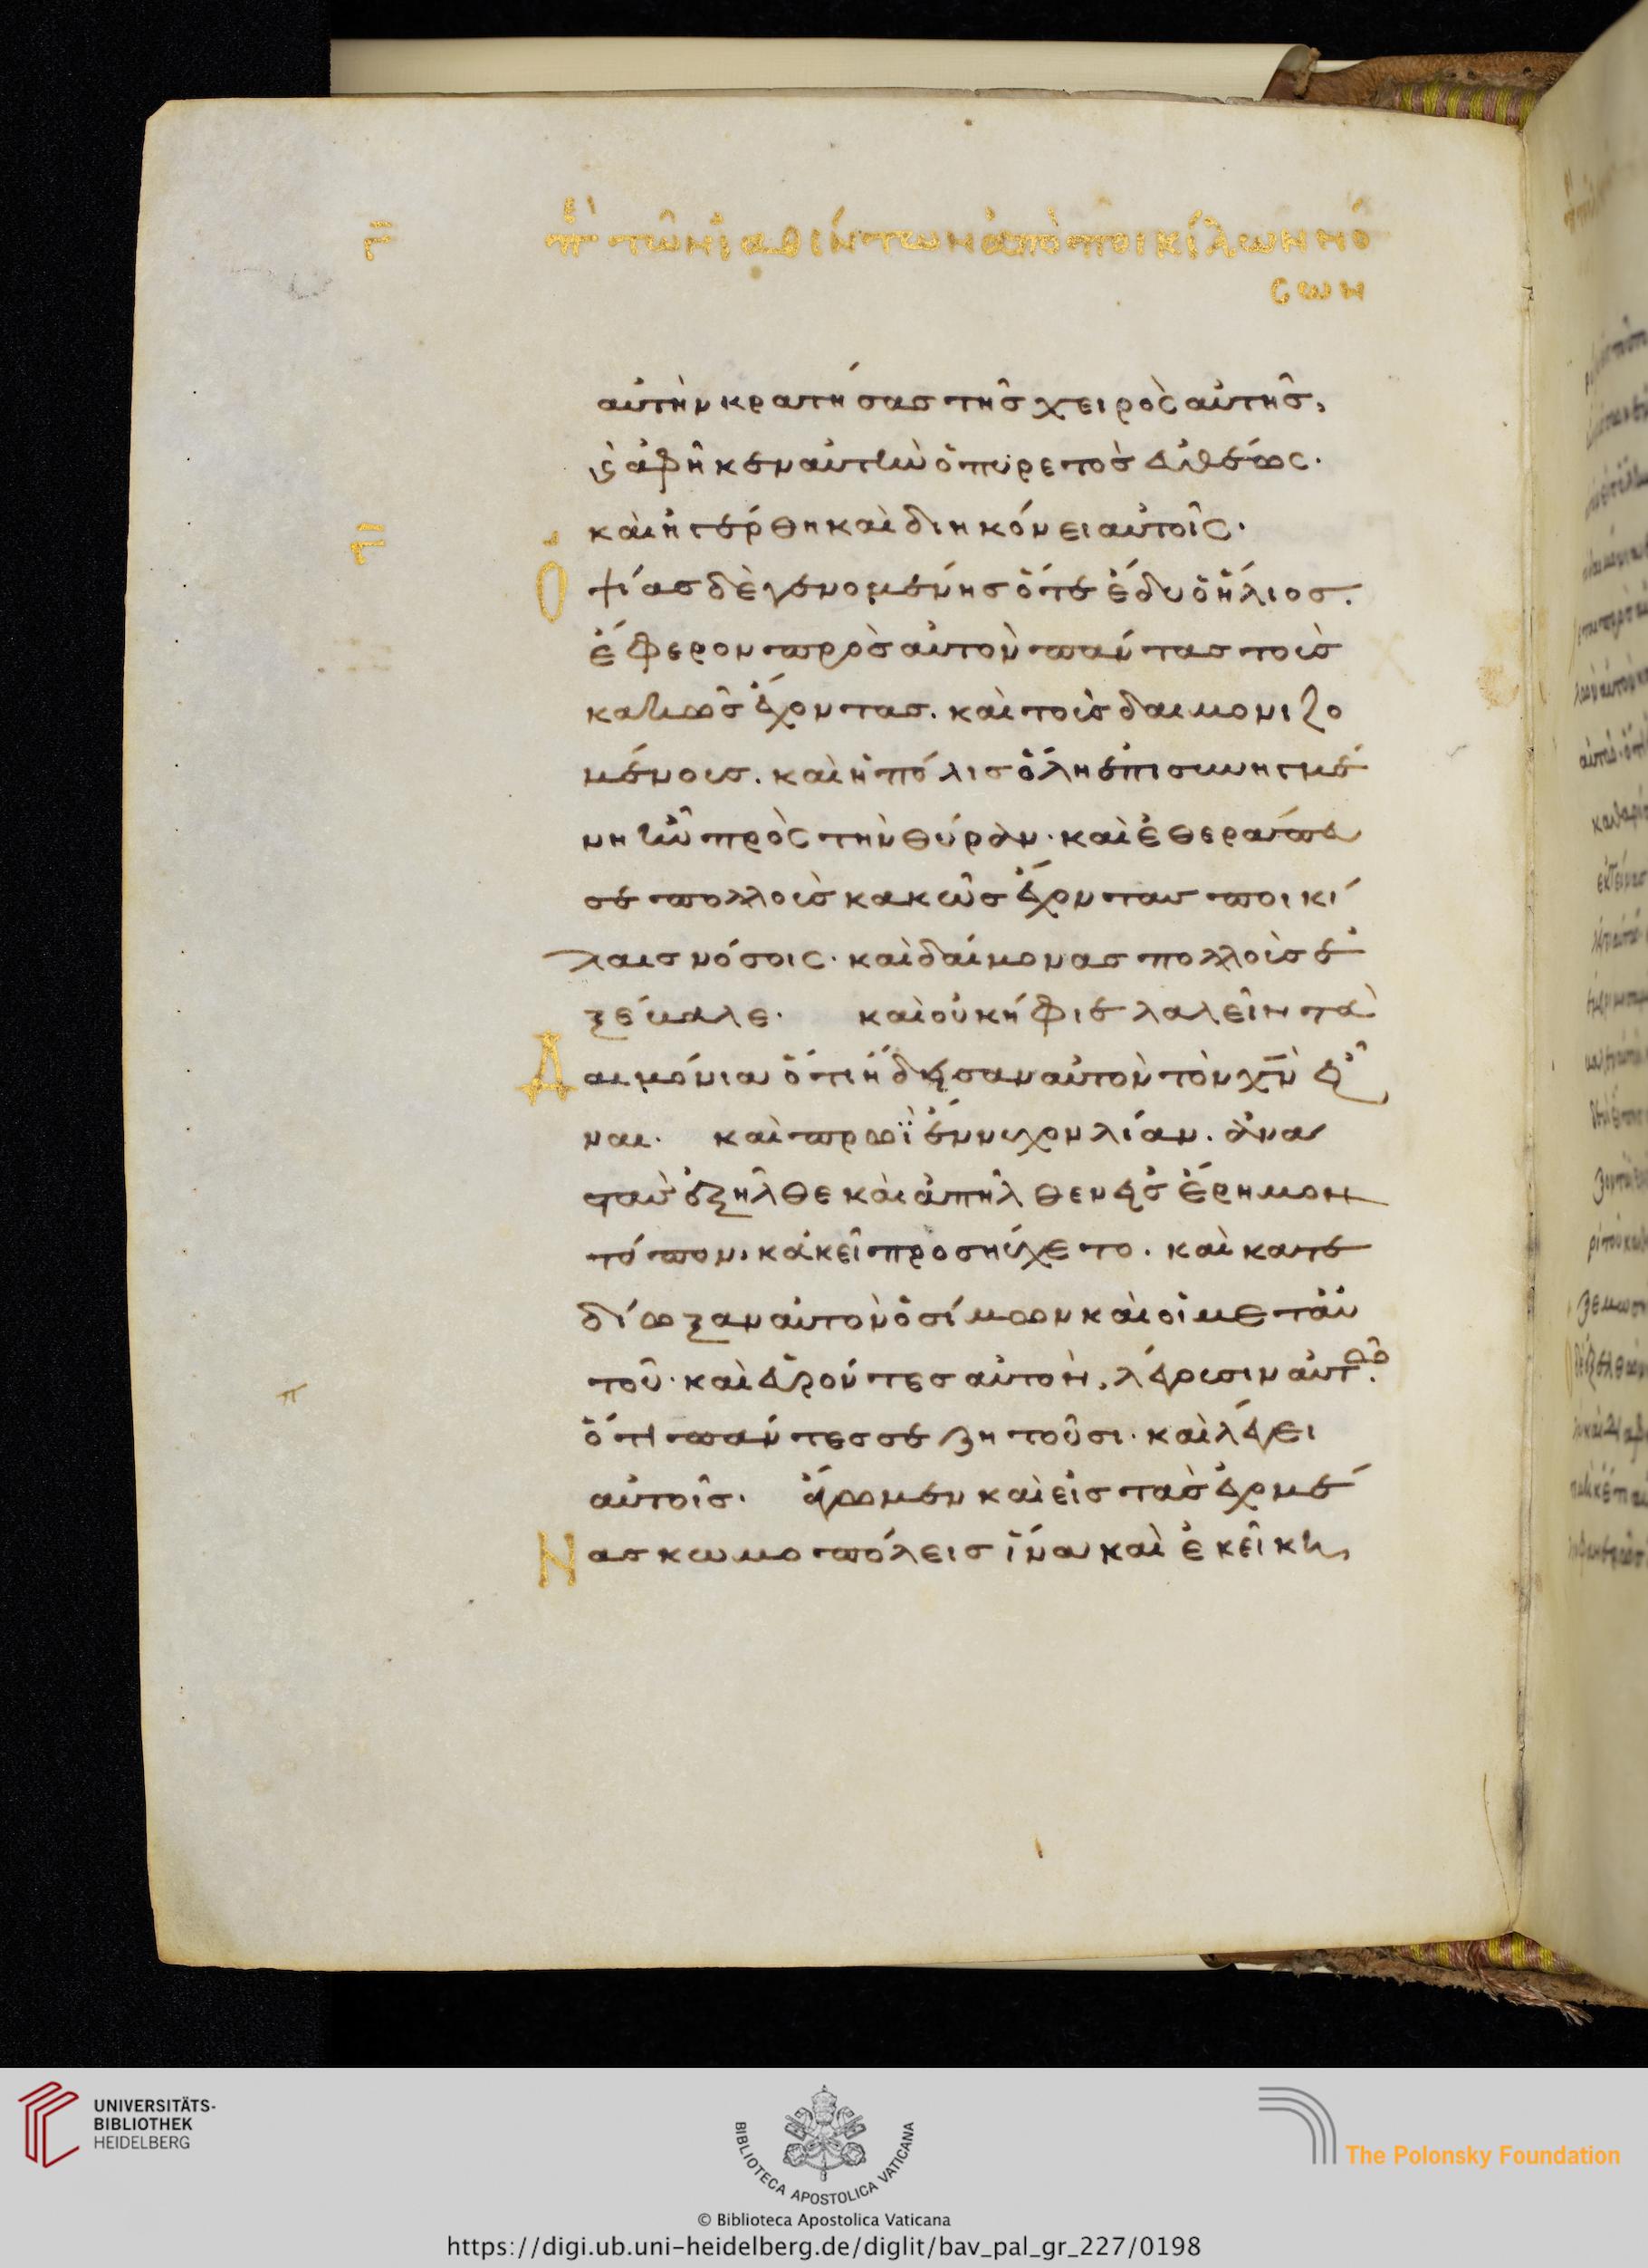 Γ̅ περὶ τῶν ἰαθέντων ἀπὸ ποικίλων νό
σων
αὐτὴν κρατήσας τῆς χειρὸς αὐτῆς,
καὶ ἀφῆκεν αὐτὴν ὁ πυρετὸς εὐθέως.
καὶ ἠγέρθη καὶ διηκόνει αὐτοῖς.
Γ̅
Ὀψίας δὲ γενομένης ὅτε ἔδυ ὁ ἥλιος.
ἔφερον πρὸς αὐτὸν πάντας τοὺς
κακῶς ἔχοντας. καὶ τοὺς δαιμονιζο
μένους. καὶ ἡ πόλις ὅλη ἐπισυνηγμέ
νη ἦν πρὸς τὴν θύραν. καὶ ἐθεράπευ
σε πολλοὺς κακῶς ἔχοντας ποικί
λαις νόσοις. καὶ δαίμονας πολλοὺς ἐ
ξέβαλε. καὶ οὐκ ἤφιε λαλεῖν τὰ
Δαιμόνια ὅτι ᾔδεισαν αὐτὸν τὸν χ̅ν̅ εἶ
ναι. καὶ πρωῒ ἔννυχον λίαν. ἀνα
στὰς ἐξῆλθε καὶ ἀπῆλθεν εἰς ἔρημον
τόπον, κἀκεῖ προσηύχετο. καὶ κατε
δίωξαν αὐτὸν ὁ σίμων καὶ οἱ μετ' αὐ
τοῦ. καὶ εὑρόντες αὐτὸν, λέγουσιν αὐτῶ.
ὅτι πάντες σε ζητοῦσι. καὶ λέγει
αὐτοῖς. ἄγωμεν καὶ εἰς τὰς ἐχομέ
Νας κωμοπόλεις ἵνα καὶ ἐκεῖ κη
UNIVERSITÄTS-
BIBLIOTHEK
HEIDELBERG
BIBLIOTECA APOSTOLICA VATICANA
The Polonsky Foundation
© Biblioteca Apostolica Vaticana
https://digi.ub.uni-heidelberg.de/diglit/bav_pal_gr_227/0198